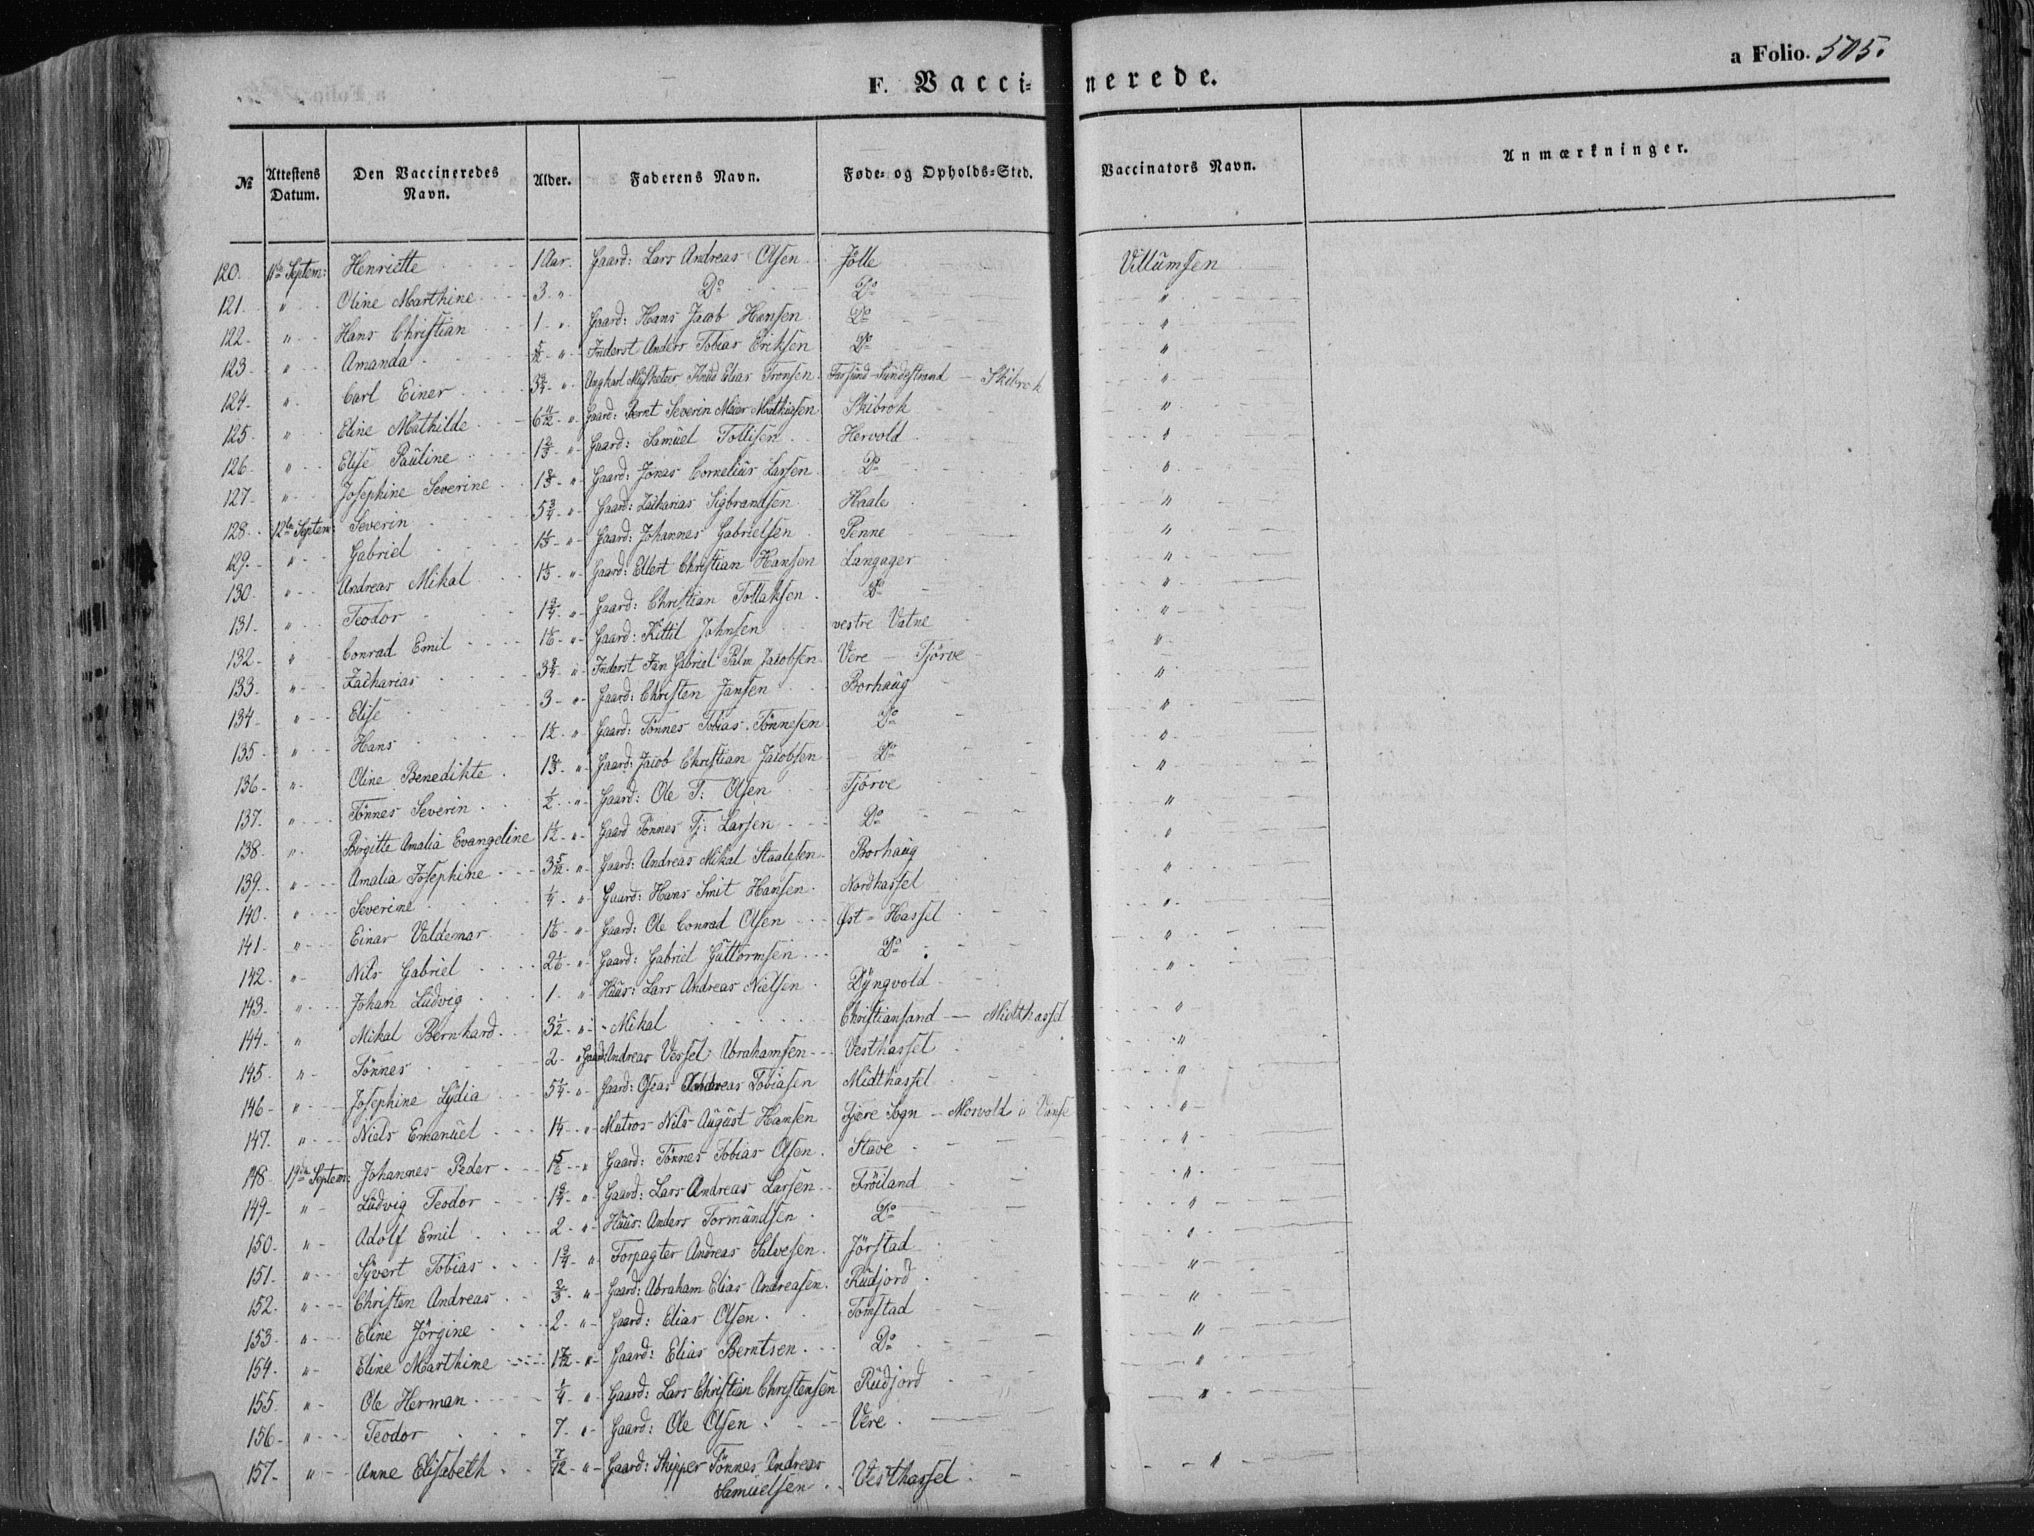 a Folio. 505.
F. Vacci- nerede.
№ Attestens Datum. Den Vaccineredes Navn. Alder. Faderens Navn. Føde- og Opholds-Sted. Vaccinators Navn. Anmærkninger.
120. 11te Septem: Henriette 1 Aar. Gaard: Lars Andreas Olsen Jölle Villumsen
121. " Oline Marthine 3 " Do Do "
122. " Hans Christian 1 " Gaard: Hans Jacob Hansen Do "
123. " Amanda 5/12 " Inderst Anders Tobias Eriksen Do "
124. " Carl Einer 3 3/4 " Ungkarl Musketeer Knud Elias Tronsen Farsund-Sundestrand - Skibrok "
125. " Eline Mathilde 6 11/12 " Gaard: Bernt Severin Meier Mathiasen Skibrok "
126. " Elise Pauline 1 2/3 " Gaard: Samuel Tollisen Hervold "
127. " Josephine Severine 1 2/3 " Gaard: Jonas Cornelius Larsen Do "
128. 12te Septem: Severin 5 3/4 " Gaard: Zacharias Sigbrandsen Haale "
129. " Gabriel 1 1/3 " Gaard: Johannes Gabrielsen Penne "
130. " Andreas Mikal 1 1/3 " Gaard: Ellert Christian Hansen Langager "
131. " Teodor 1 3/4 " Gaard: Christian Tollaksen Do "
132. " Conrad Emil 1 1/6 " Gaard: Kittil Johnsen vestre Vatne "
133. " Zacharias 3 3/4 " Inderst Jan Gabriel Palm Jacobsen Vere - Tjörve "
134. " Elise 3 " Gaard: Christen Jansen Borhaug "
135. " Hans 1 1/2 " Gaard: Tönnes Tobias Tönnesen Do "
136. " Oline Benedikte 1 2/3 " Gaard: Jacob Christian Jacobsen Do "
137. " Tönnes Severin 1/2 " Gaard: Ole T: Olsen Tjörve "
138. " Birgitte Amalia Evangeline 1 1/2 " Gaard Tönnes Tj: Larsen Do "
139. " Amalia Josephine 3 5/12 " Gaard: Andreas Mikal Staalesen Borhaug "
140. " Severine 1/4 " Gaard: Hans Smit Hansen Nordhassel "
141. " Einar Valdemar 1 1/6 " Gaard: Ole Conrad Olsen Øst-Hassel "
142. " Nils Gabriel 2 1/6 " Gaard: Gabriel Guttormsen Do "
143. " Johan Ludvig 1 " Huus: Lars Andreas Nielsen Dyngvold "
144. " Mikal Bernhard 3 1/2 " Mikal Christiansand - Midthassel "
145. " Tönnes 2 " Gaard: Andreas Vessel Abrahamsen Vesthassel "
146. " Josephine Lydia 5 1/4 " Gaard: Oseas Andreas Tobiasen Midthassel "
147. " Niels Emanuel 1 1/4 " Matros Nils August Hansen Fjære Sogn - Mosvold i Vanse "
148. 19de Septem: Johannes Peder 1 5/6 " Gaard: Tönnes Tobias Olsen Stave "
149. " Ludvig Teodor 1 3/4 " Gaard: Lars Andreas Larsen Fröiland "
150. " Adolf Emil 2 " Huus: Anders Tormundsen Do "
151. " Syvert Tobias 1 3/4 " Forpagter Andreas Salvesen Jörstad "
152. " Christen Andreas 2/3 " Gaard: Abraham Elias Andreasen Rudjord "
153. " Eline Jörgine 2 " Gaard: Elias Olsen Tomstad "
154. " Eline Marthine 1 7/12 " Gaard: Elias Berntsen Do "
155. " Ole Herman 1/4 " Gaard: Lars Christian Christensen Rudjord "
156. " Teodor 7 " Gaard: Ole Olsen Vere
157. " Anne Elisabeth 7/12 " Gaard: Skipper Tönnes Andreas Samuelsen Vesthassel "